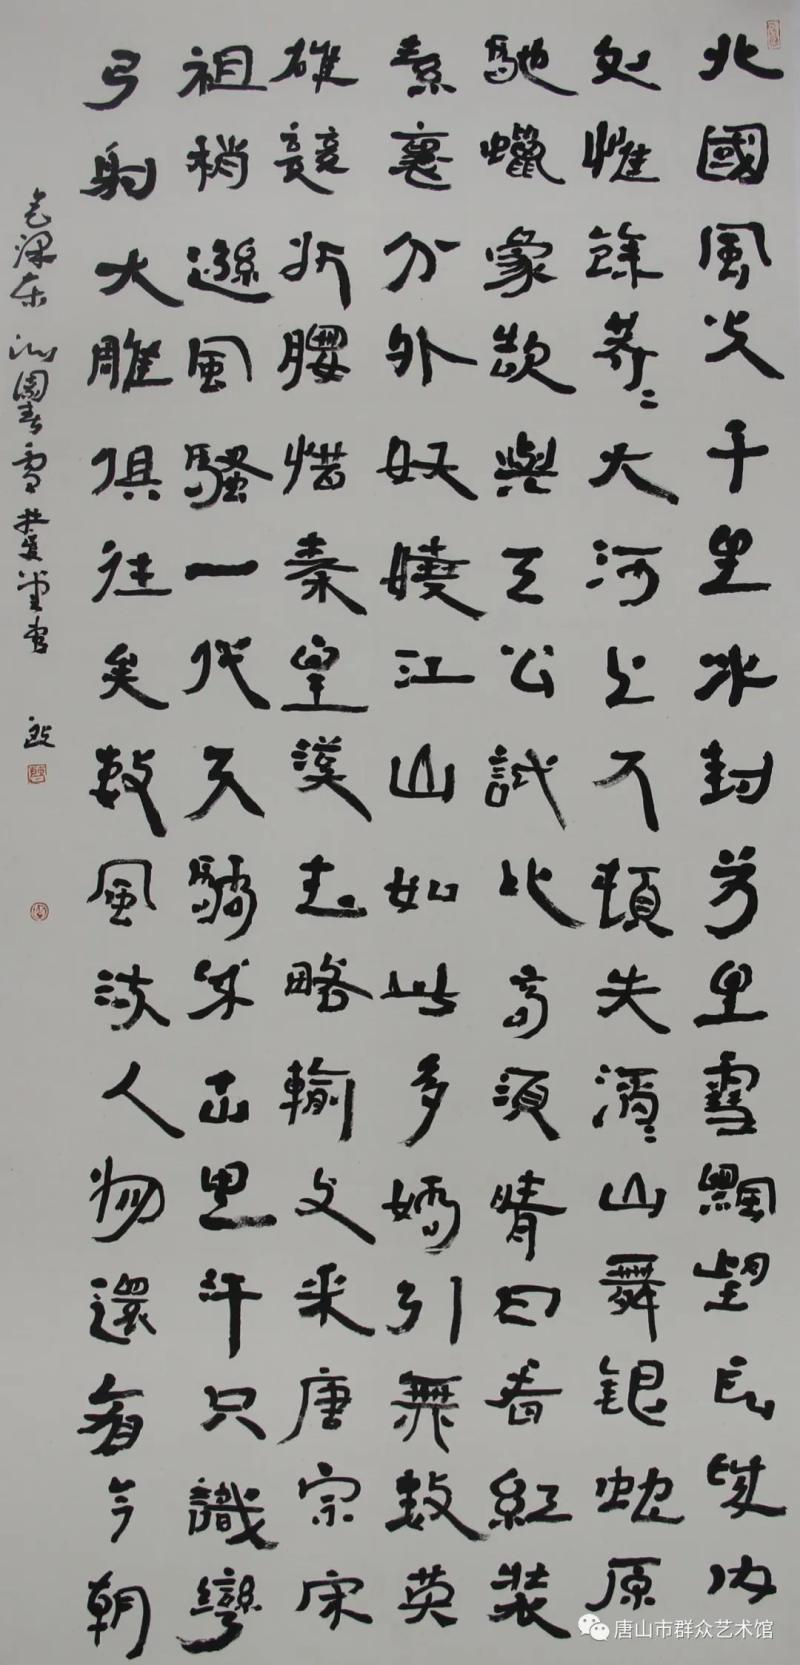 北國風光千里冰封万里雪飄望長城内
外惟餘莽〻大河上下頓失滔〻山舞銀蛇原
馳蠟象欲與天公試比高須晴日看紅裝
素裹分外妖嬈江山如此多嬌引無數英
雄競折腰惜秦皇漢武略輸文采唐宗宋
祖稍遜風騷一代天驕成吉思汗只識彎
弓射大雕俱往矣數風流人物還看今朝
毛澤東沁園春雪
唐山市群众艺术馆